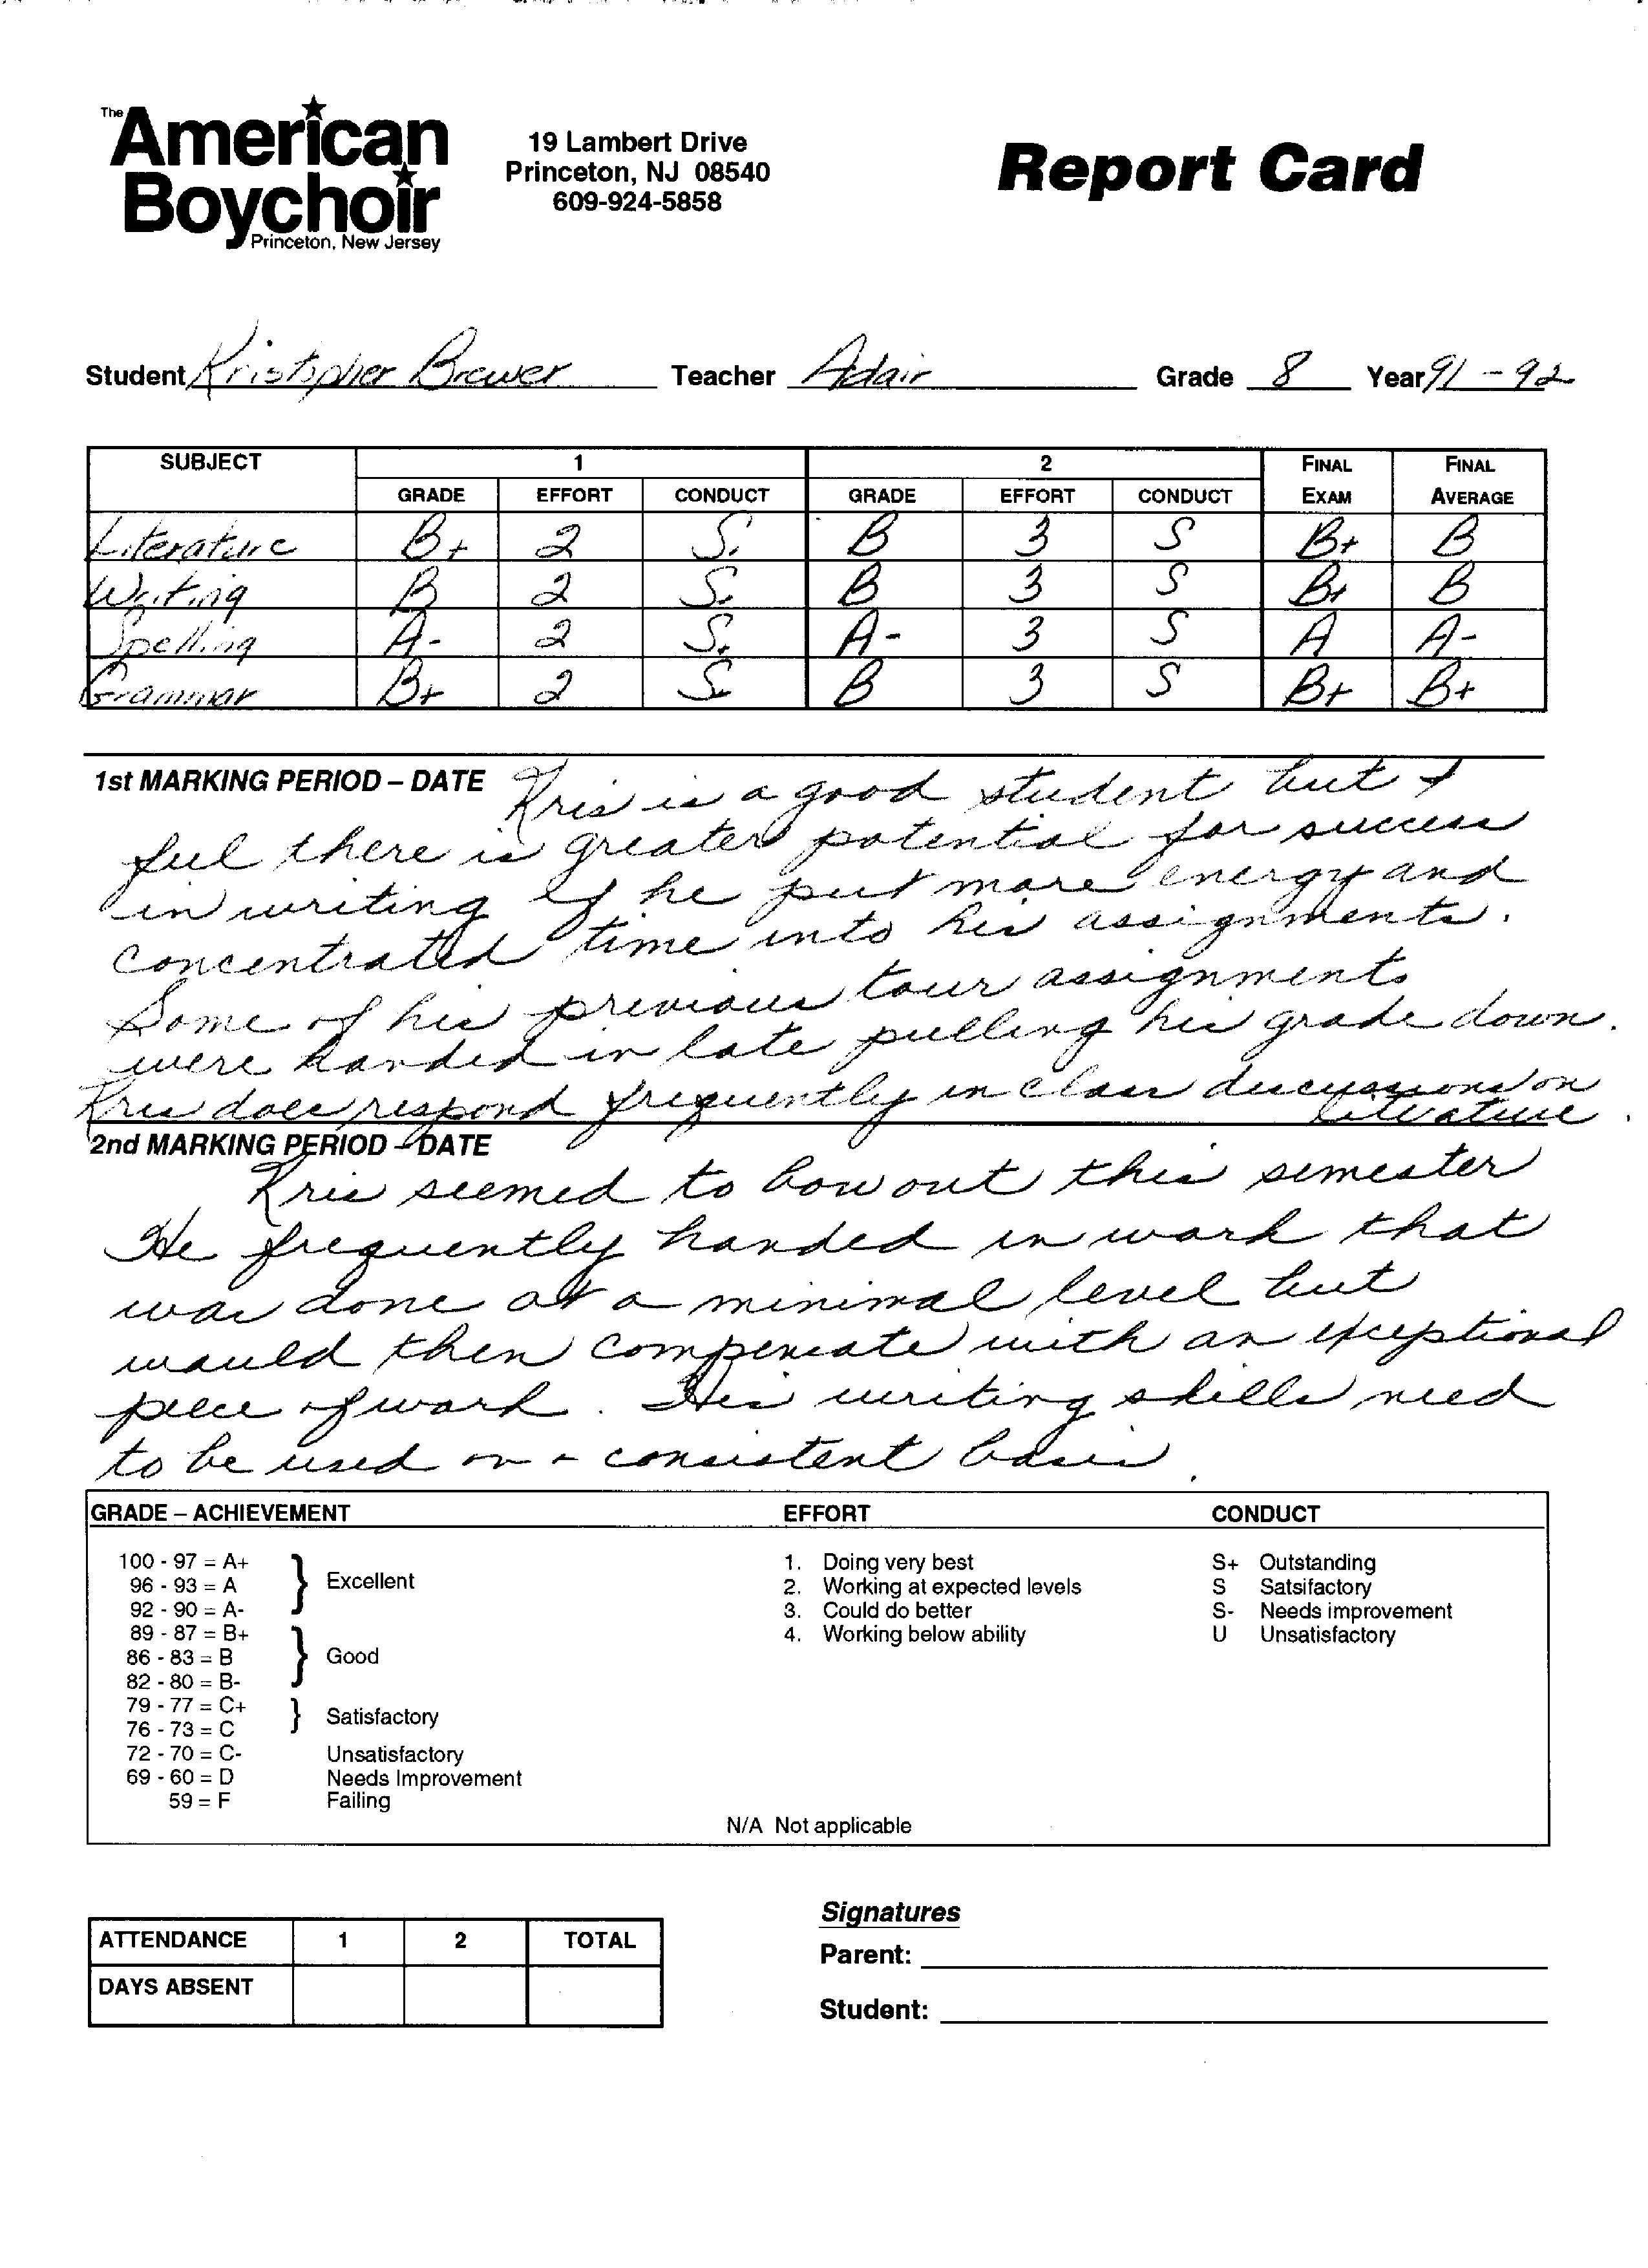 The American Boychoir
Princeton, New Jersey
19 Lambert Drive
Princeton, NJ 08540
609-924-5858
Report Card
Student Kristopher Brewer Teacher Adair Grade 8 Year 91-92
SUBJECT 1 2 FINAL FINAL
GRADE EFFORT CONDUCT GRADE EFFORT CONDUCT EXAM AVERAGE
Literature B+ 2 S. B 3 S B+ B
Writing B 2 S. B 3 S B+ B
Spelling A- 2 S. A- 3 S A A-
Grammar B+ 2 S. B 3 S B+ B+
1st MARKING PERIOD – DATE Kris is a good student but I
feel there is greater potential for success
in writing if he put more energy and
concentrated time into his assignments.
Some of his previous tour assignments
were handed in late pulling his grade down.
Kris does respond frequently in class discussions on
literature.
2nd MARKING PERIOD – DATE
Kris seemed to bow out this semester
He frequently handed in work that
was done at a minimal level but
would then compensate with an exceptional
piece of work. His writing skills need
to be used on a consistent basis.
GRADE – ACHIEVEMENT EFFORT CONDUCT
100 - 97 = A+ 1. Doing very best S+ Outstanding
96 - 93 = A Excellent 2. Working at expected levels S Satsifactory
92 - 90 = A- 3. Could do better S- Needs improvement
89 - 87 = B+ 4. Working below ability U Unsatisfactory
86 - 83 = B Good
82 - 80 = B-
79 - 77 = C+ Satisfactory
76 - 73 = C
72 - 70 = C- Unsatisfactory
69 - 60 = D Needs Improvement
59 = F Failing
N/A Not applicable
Signatures
ATTENDANCE 1 2 TOTAL
Parent:
DAYS ABSENT
Student: